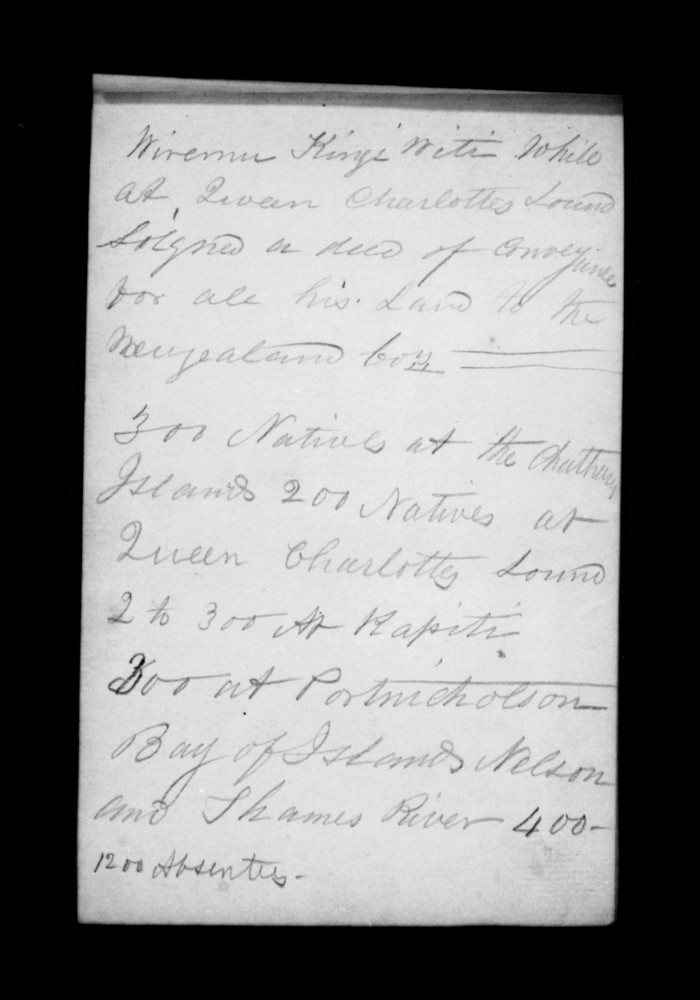 Wiremu Kingi Witi While
at Queen Charlottes Sound
Soigned a deed of Conveyance
for all his Land to the
Newzealand Coy
300 Natives at the Chatham
Islands 200 Natives at
Queen Charlottes Sound
2 to 300 At Kapiti
300 at Portnicholson
Bay of Islands Nelson
and Thames River 400-
1200 Absentees-